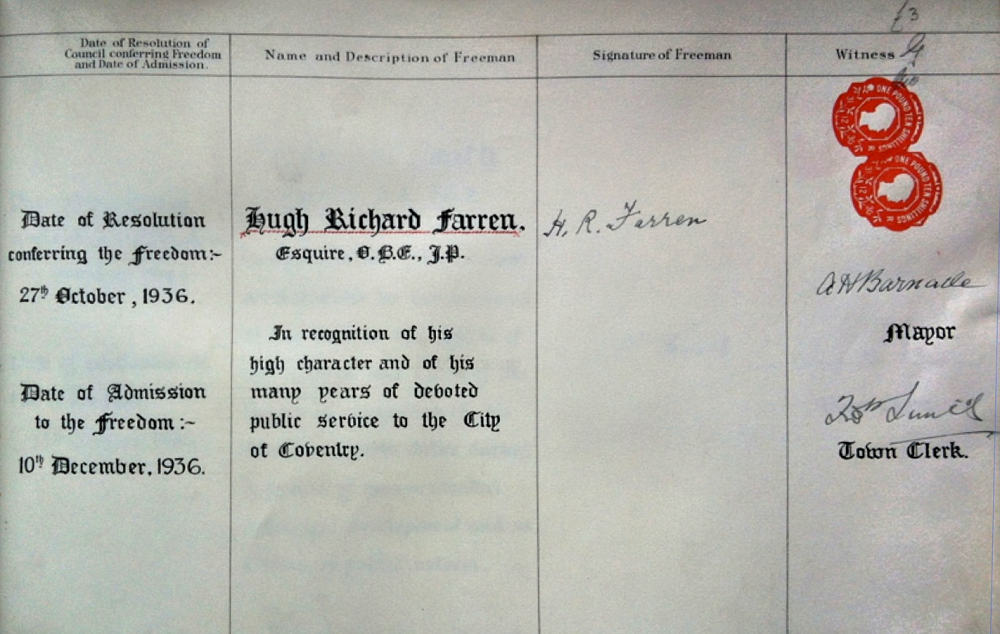 £3
Date of Resolution of
Council conferring Freedom
and Date of Admission.
Name and Description of Freeman
Signature of Freeman
Witness
ONE POUND TEN SHILLINGS
ONE POUND TEN SHILLINGS
Date of Resolution
conferring the Freedom:-
27th October, 1936.
Date of Admission
to the Freedom:-
10th December, 1936.
Hugh Richard Farren.
Esquire, O.B.E., J.P.
In recognition of his
high character and of his
many years of devoted
public service to the City
of Coventry.
H. R. Farren
A H Barnacle
Mayor
Smith
Town Clerk.